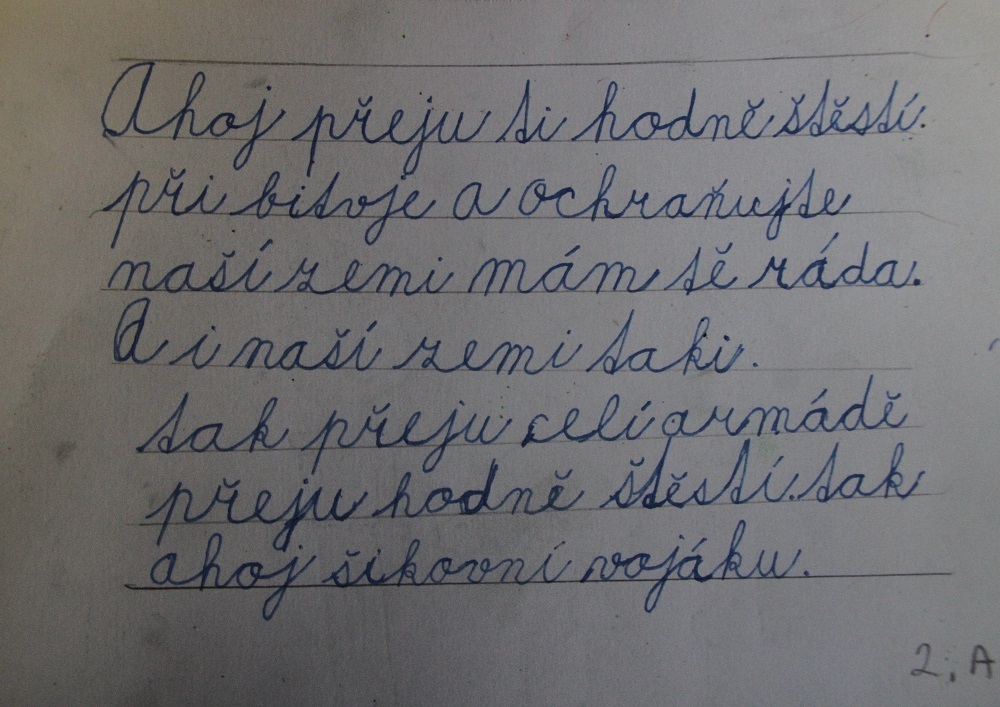 Ahoj přeju ti hodně štěstí.
při bitvje a ochraňujte
naší zemi mám tě ráda.
A i naší zemi taki.
tak přeju celí armádě
přeju hodně štěstí. tak
ahoj šikovní vojáku.
2. A